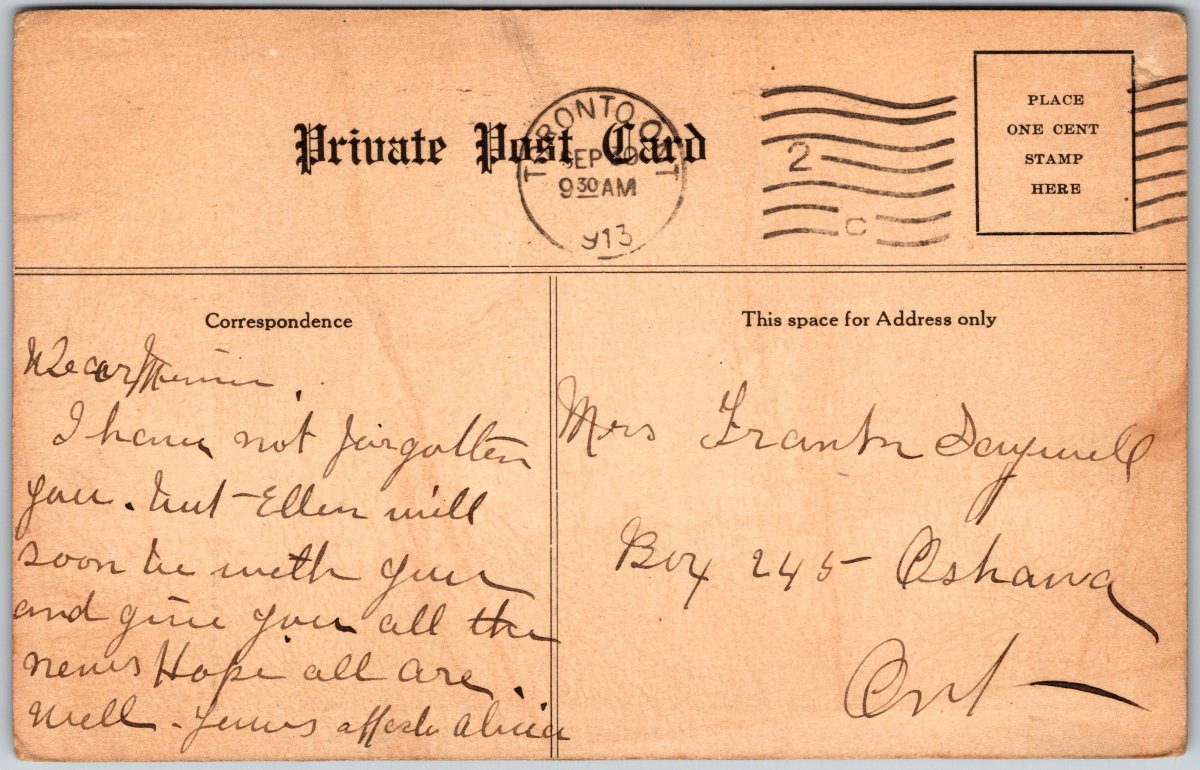 Private Post Card
TORONTO, ONT
SEP
9 30 AM
1913
2
C
PLACE
ONE CENT
STAMP
HERE
Correspondence
Dear Minnie
I have not forgotten
you. but Ellen will
soon be with you
and give you all the
news Hope all are
well - yours affect
This space for Address only
Mrs Frank
Box 245 Oshawa
Ont